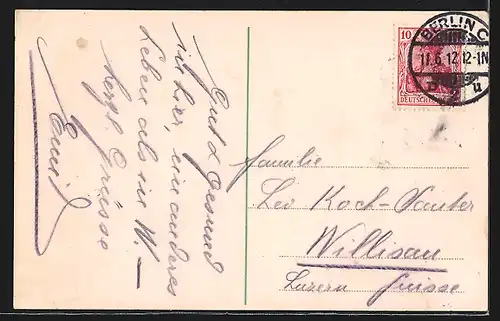 Gut & Gesund
sich hier, ein anderes
Leben als in W. —
Herzl. Grüsse
Emil
10
DEUTSCHES
BERLIN C
11.6.12 12-1N
2
u
Familie
Leo Koch-Santer
Willisau
Luzern Suisse